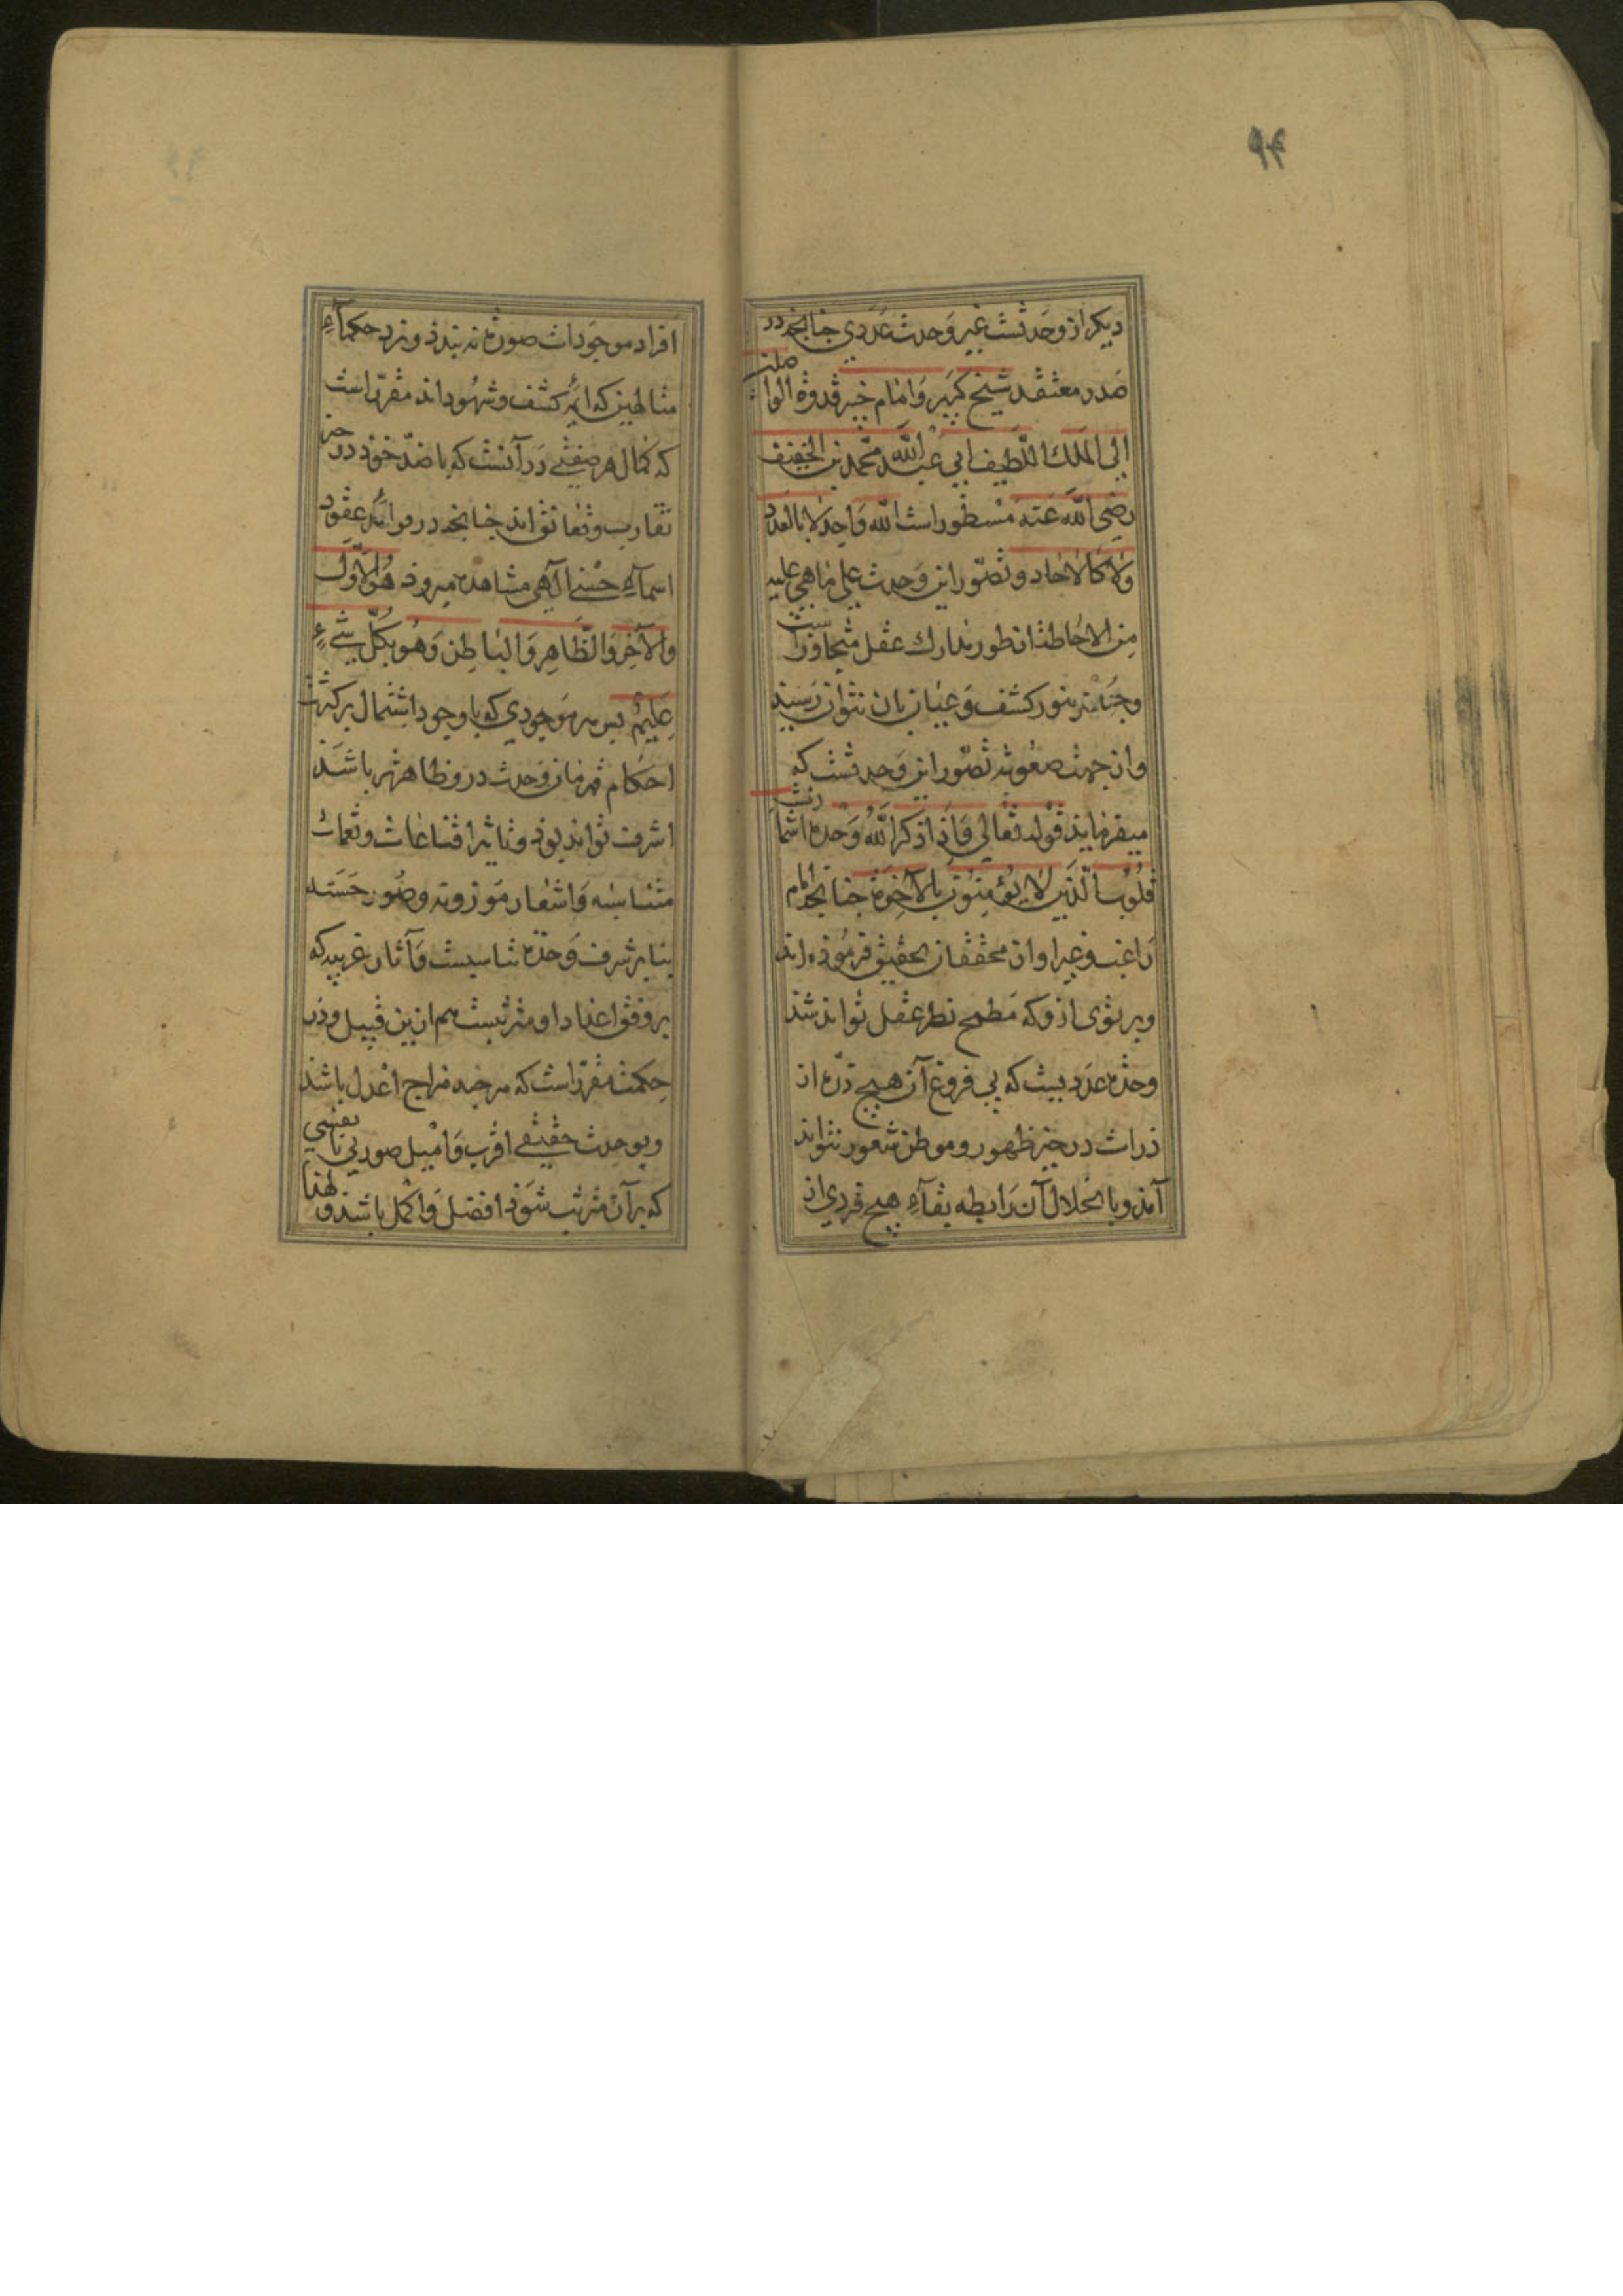 ۹۴
دیکر از وحدتست غیر وحدت عددی چنانچه در
صدر معتقد شیخ کبیر وامام خبیر قدوة الواصلین
الی الملک اللطیف ابی عبد الله محمد بن الخفیف
رضی الله عنه مسطور است الله واحد لا بالعدد
ولا کالاحاد وتصور این وحدت علی ما هی علیه
من الاحاطة از طور مدارك عقل متجاوز است
وجز بنور کشف وعیان بان نتوان رسید
واز جهت صعوبت تصور این وحدتست که
میفرماید قوله تعالی فاذا ذکر الله وحده اشمأزت
قلوب الذین لا یؤمنون بالآخرة چنانچه امام
راغب وغیر او از محققان تحقیق فرموده اند
وپرتوی ازو که مطمح نظر عقل تواند شد
وحدة عددیست که بی فروغ آن هیچ ذره از
ذرات در حیز ظهور وموطن شعور نتواند
آمد وبا انحلال آن رابطه بقاء هیچ فردی از
افراد موجودات صورة نه بندد ونزد حکماء
متالهین که ائمه کشف وشهود اند مقرر است
که کمال هر صفتی در آنست که با ضد خود در حیز
تقارب وتعانق اند چنانچه در فواید عقود
اسماء حسنی آلهی مشاهده میرود هو الاول
والآخر والظاهر والباطن وهو بکل شیء
علیم پس هر موجودی که با وجود اشتمال بر کثرت
احکام قهرمان وحدت درو ظاهرتر باشد
اشرف تواند بود وتاثیر ایقاعات ونغمات
متناسبه واشعار موزونه وصور حسنه
بنابر شرف وحدة تناسبیست وآثار غریبه که
بر وفق اعداد او مترتبست هم ازین قبیل ودر
حکمت مقرر است که هر چند مزاج اعدل باشد
وبوحدت حقیقی اقرب وامیل صورتی یا نفسی
که بر آن مترتب شود افضل واکمل باشد ولهذا